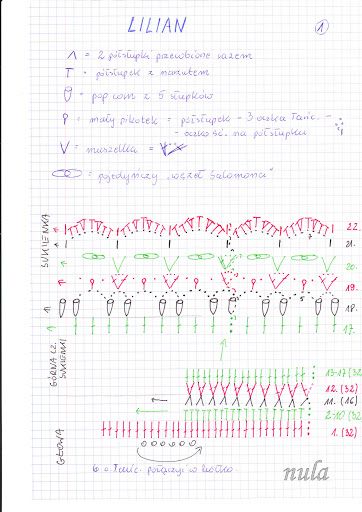 LILIAN
1
Λ = 2 półsłupki przerobione razem
T = półsłupek z narzutem
= popcorn z 5 słupków
= mały pikotek = półsłupek - 3 oczka łańc. -
- oczko śc. na półsłupku
V = muszelka =
= pojedynczy "węzeł Salomona"
SUKIENKA
22.
21.
7
20.
19.
5
18.
17.
GÓRNA CZ. SUKIENKI
13-17 (32
12. (32)
11. (16)
2-10 (32
GŁOWA
1. (32)
6 o. łańc. połączyć w kółko
nula